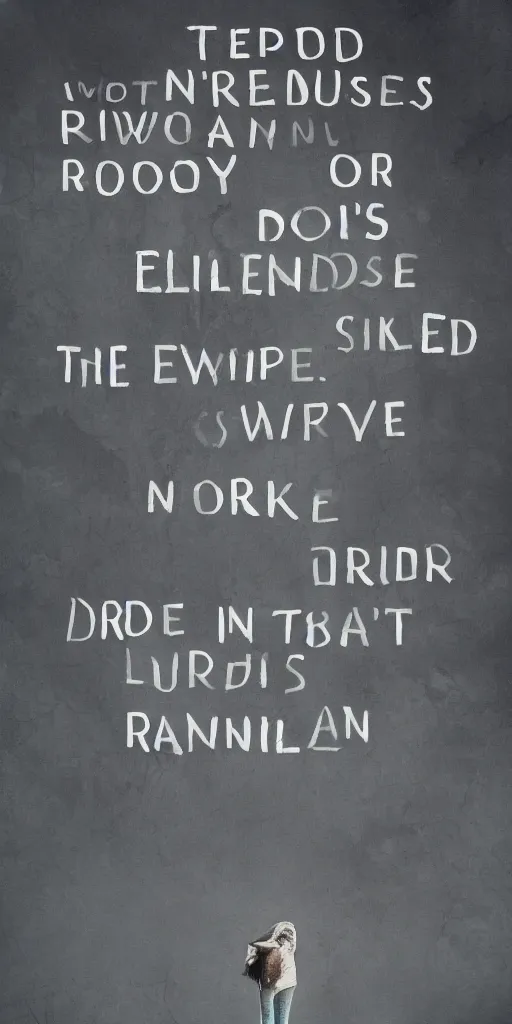 TEPOD
IWOTN'REDUSES
RIWOANNL
ROOOY OR
DOI'S
ELILENDOSE
SIKLED
THE EWIIPE.
SWIRVE
NORKE
DRIDR
DRDE IN TBA'T
LURDIS
RANNILAN